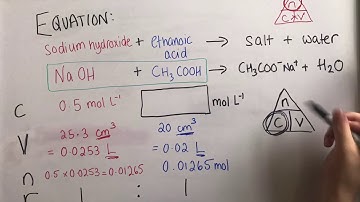 EQUATION:
n
C x V
sodium hydroxide + ethanoic acid → salt + water
NaOH + CH₃COOH → CH₃COO⁻Na⁺ + H₂O
C 0.5 mol L⁻¹ mol L⁻¹
n
C V
V 25.3 cm³ 20 cm³
= 0.0253 L = 0.02 L
n 0.5 x 0.0253 = 0.01265 0.01265 mol
1 : 1